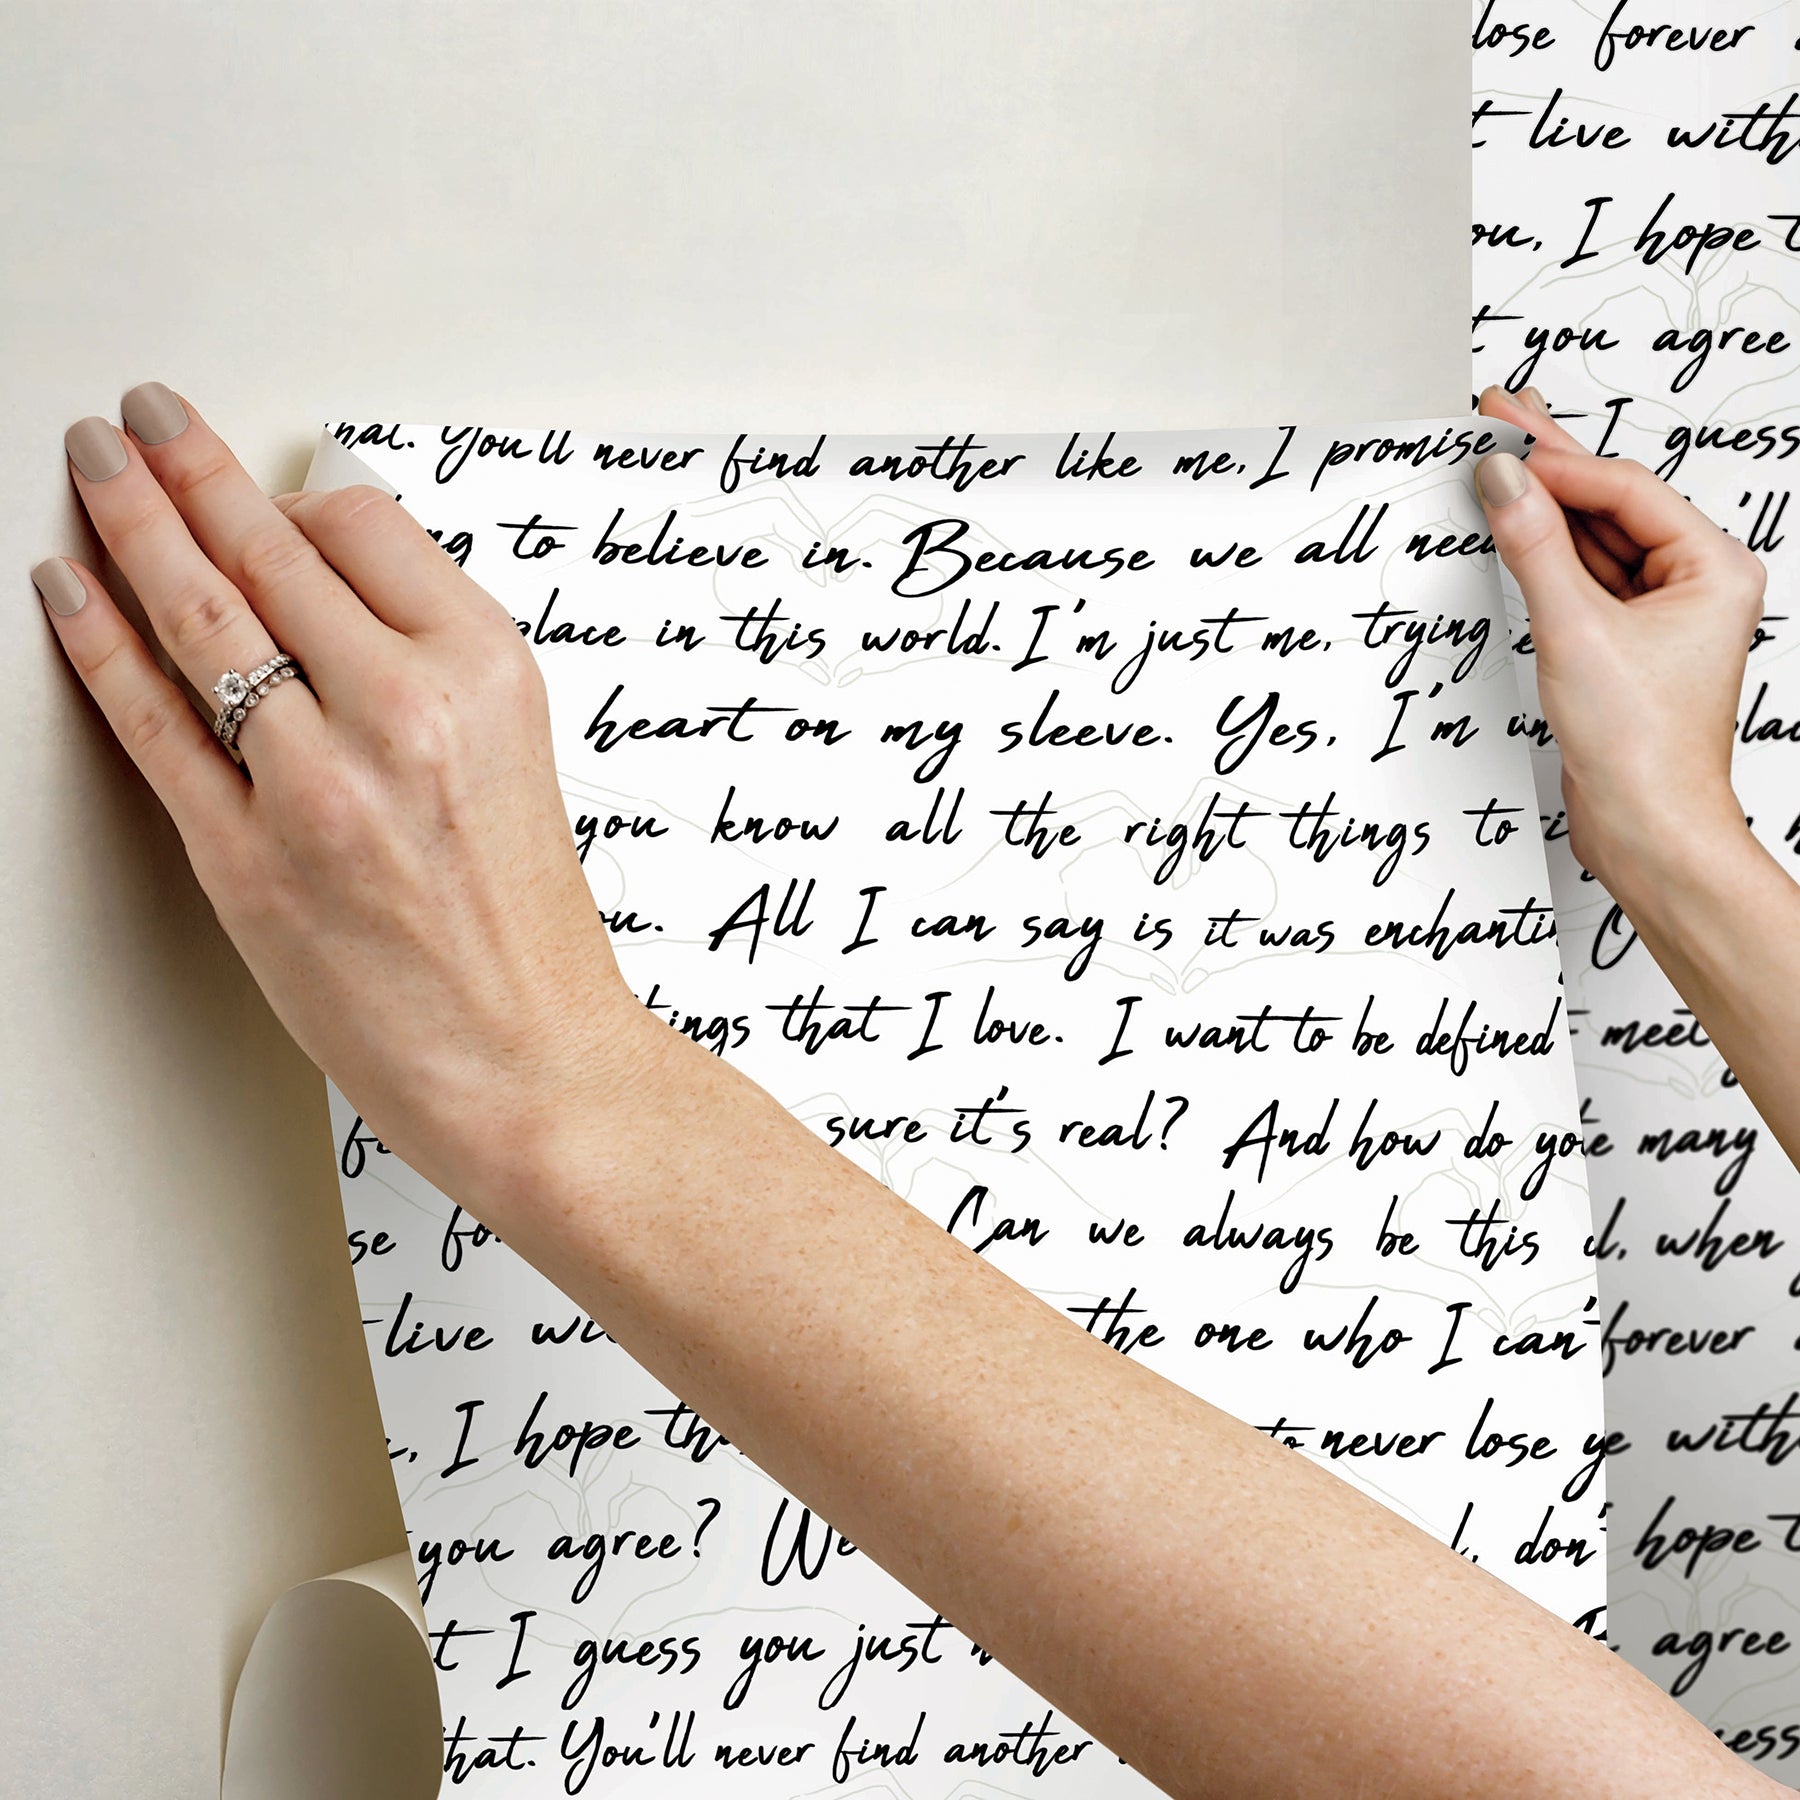 You'll never find another like me, I promise
to believe in. Because we all need
place in this world. I'm just me, trying
heart on my sleeve. Yes, I'm
you know all the right things to
All I can say is it was enchanting
things that I love. I want to be defined
sure it's real? And how do you
Can we always be this
live the one who I can't
I hope to never lose
you agree? We don't
I guess you just
that. You'll never find another
lose forever
live
you, I hope
you agree
I guess
meet
many
when
forever
hope
agree